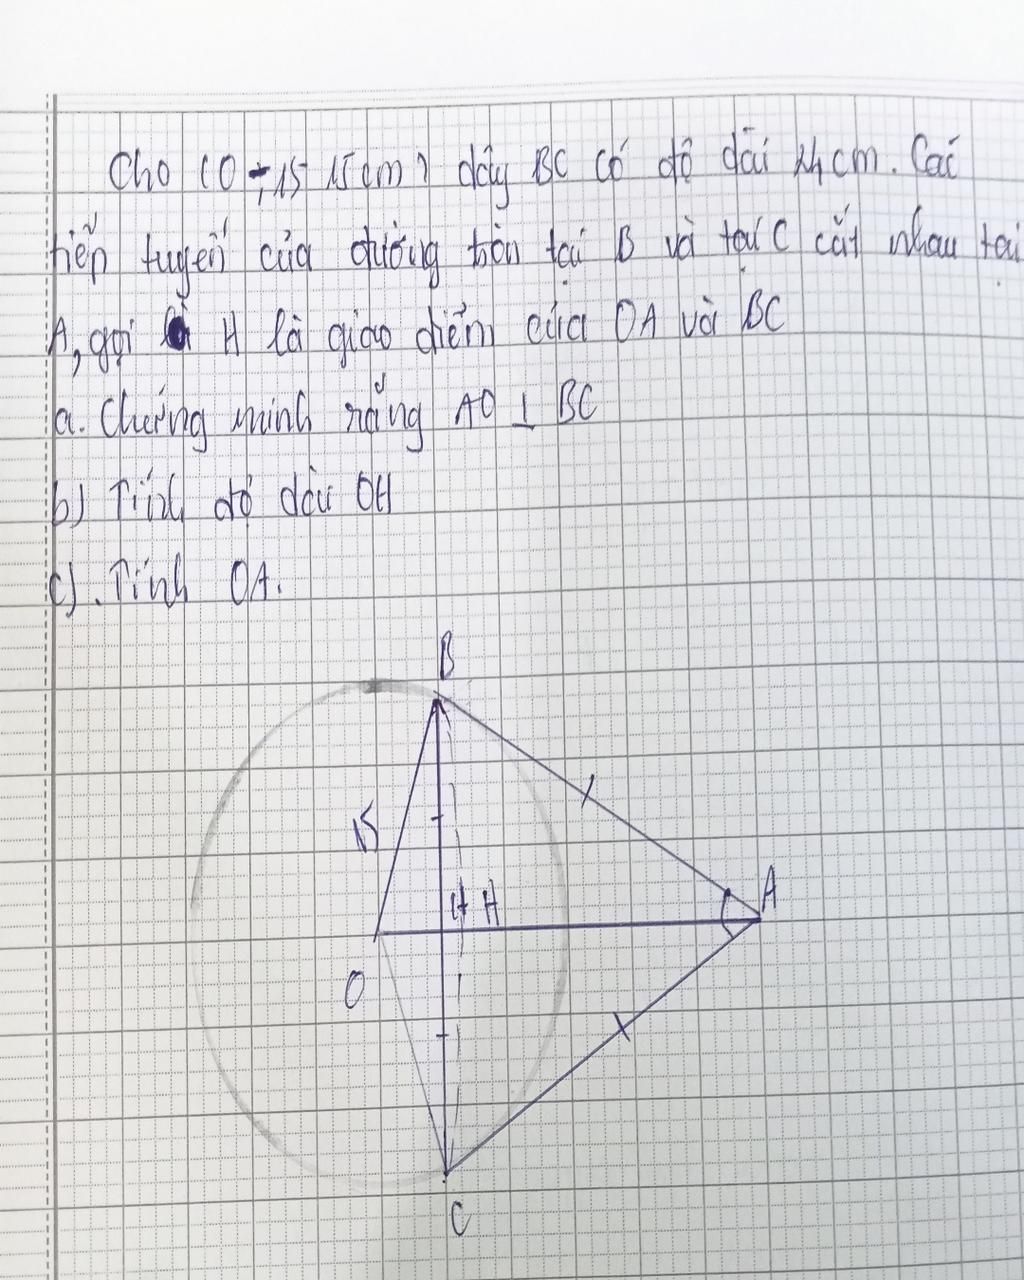 Cho (O; 15 15cm) dây BC có độ dài 24cm. Các
tiếp tuyến của đường tròn tại B và tại C cắt nhau tại
A, gọi H là giao điểm của OA và BC
a. Chứng minh rằng AO ⊥ BC
b) Tính độ dài OH
c). Tính OA.
B
15
H H
A
O
C